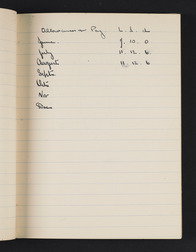 Allowance Pay L. s. d
June. 9. 10. 0
July 11. 12. 6.
August 11. 12. 6
Sept
Oct
Nov
Dec